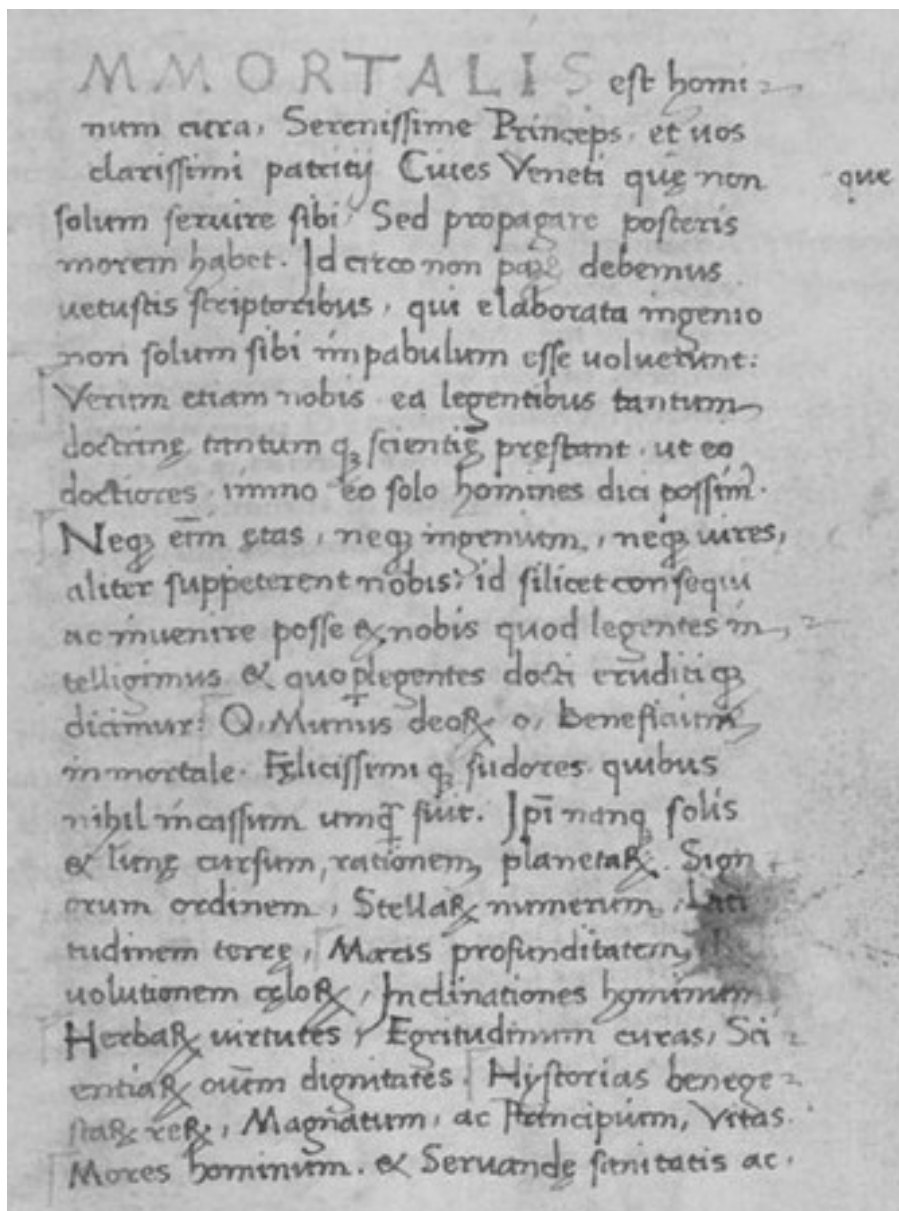 MMORTALIS est homi-
num cura, Serenissime Princeps, et uos
clarissimi patritij Ciues Veneti quę non que
solum seruire sibi, Sed propagare posteris
morem habet. Idcirco non debemus
uetustis scriptoribus, qui elaborata ingenio
non solum sibi in pabulum esse uoluerunt:
Verum etiam nobis ea legentibus tantum
doctrinę tantum qꝫ scientię pręstant, ut eo
doctiores, immo eo solo homines dici possim᷒.
Neqꝫ em̄ ętas, neqꝫ ingenium, neqꝫ uires,
aliter suppeterent nobis, id silicet consequi
ac inuenire posse & nobis quod legentes in-
telligimus & quo plegentes docti eruditiqꝫ
dicimur: O, Munus deoꝝ o, Beneficium
inmortale. Fęlicissimi qꝫ sudores quibus
nihil incassum umqꝫ fuit. Ipı̄ nanqꝫ solis
& lunę cursum, rationem planetaꝝ. Sign
orum ordinem, Stellaꝝ numerum, Lati
tudinem terrę, Maris profunditatem,
uolutionem cęloꝝ, Inclinationes hominum
Herbaꝝ uirtutes, Egritudinum curas, Sci-
entiaꝝ ouēm dignitates. Hystorias benege-
staꝝ reꝝ, Magnatum, ac Principum, Vitas
Mores hominum. & Seruande sanitatis ac.